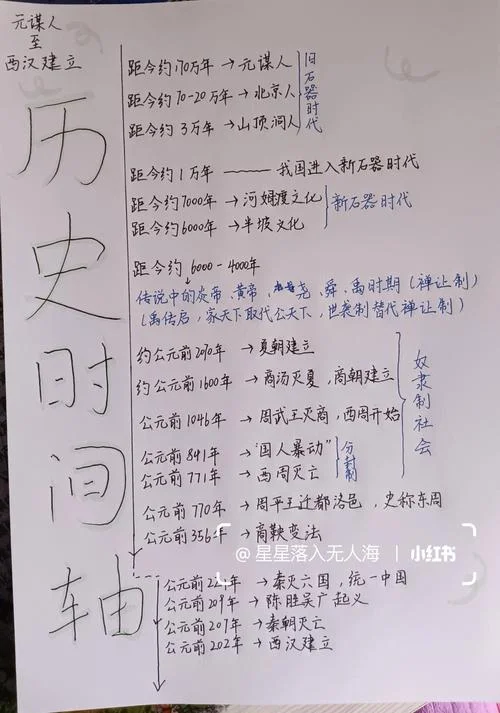 元谋人
至
西汉建立
历史时间轴
距今约170万年→元谋人
距今约70-20万年→北京人
距今约3万年→山顶洞人
旧石器时代
距今约1万年——我国进入新石器时代
距今约7000年→河姆渡文化
距今约6000年→半坡文化
新石器时代
距今约6000-4000年
传说中的炎帝、黄帝、尧、舜、禹时期(禅让制)
(禹传启,家天下取代公天下,世袭制替代禅让制)
约公元前2070年→夏朝建立
约公元前1600年→商汤灭夏,商朝建立
公元前1046年→周武王灭商,西周开始
公元前841年→"国人暴动"
公元前771年→西周灭亡
分封制
奴隶制社会
公元前770年→周平王迁都洛邑,史称东周
公元前356年→商鞅变法
@星星落入无人海 | 小红书
公元前221年→秦灭六国,统一中国
公元前209年→陈胜吴广起义
公元前207年→秦朝灭亡
公元前202年→西汉建立